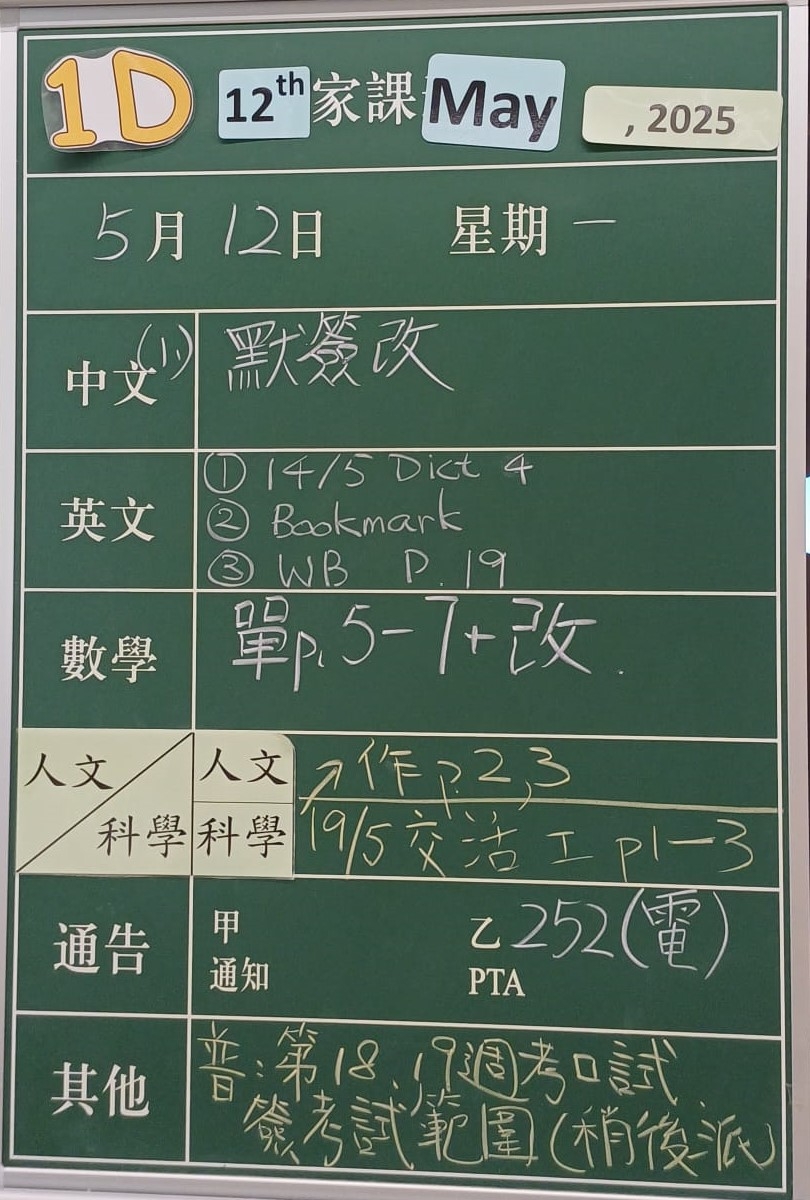 1D 12th 家課 May , 2025
5月12日 星期一
中文 (1) 默簽改
英文 ① 14/5 Dict 4
② Bookmark
③ WB P.19
數學 單p. 5-7+改.
人文 科學
人文 ↗作p.2,3
科學 19/5交活工p1-3
通告 甲 乙252(電)
通知 PTA
其他 普:第18、19週考口試.
簽考試範圍(稍後派)